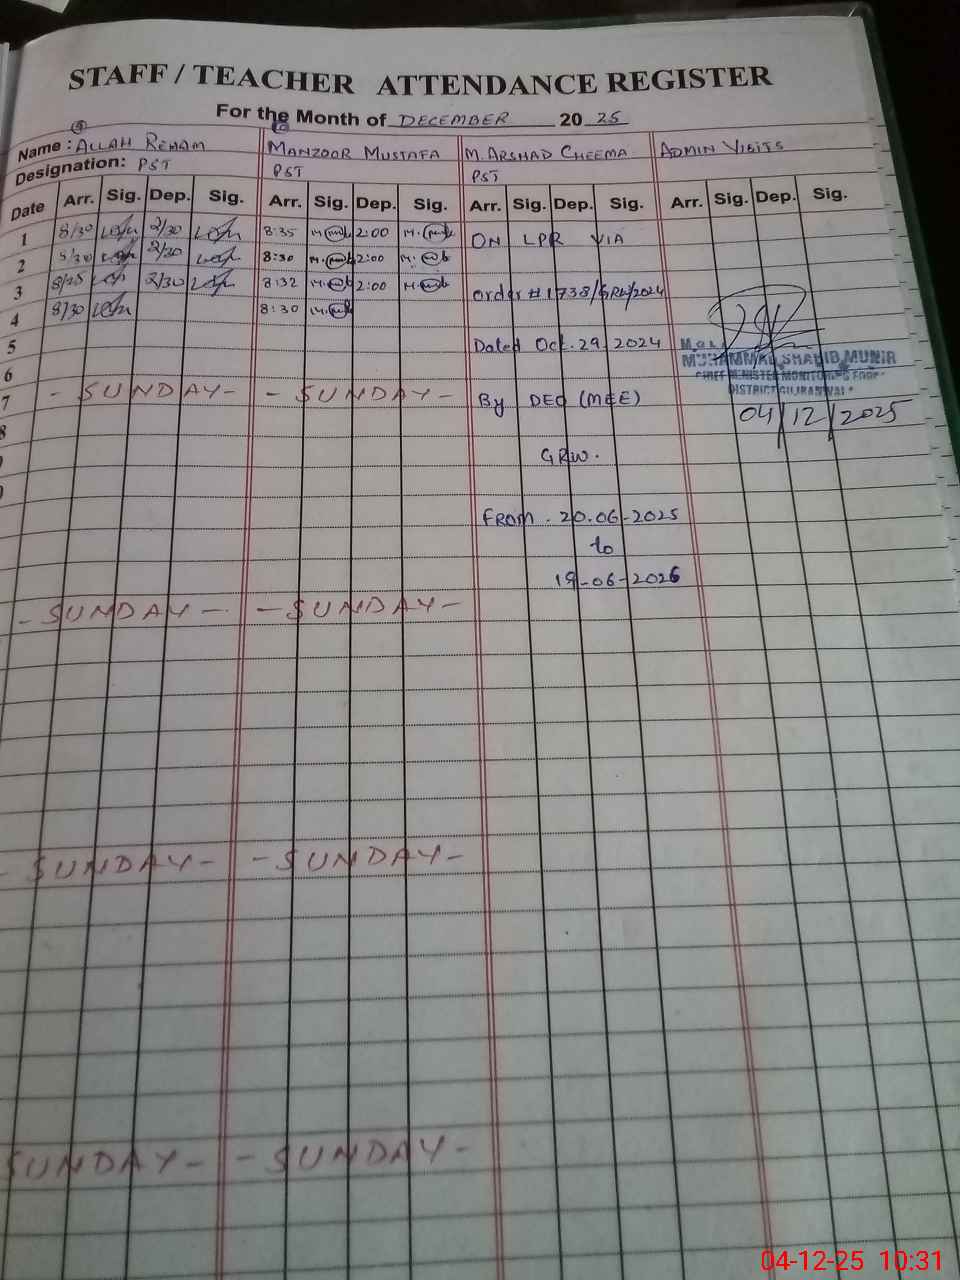 STAFF / TEACHER ATTENDANCE REGISTER
For the Month of DECEMBER 20 25
Name : ALLAH REHAM MANZOOR MUSTAFA M. ARSHAD CHEEMA ADMIN VISITS
Designation: PST PST PST
Date Arr. Sig. Dep. Sig. Arr. Sig. Dep. Sig. Arr. Sig. Dep. Sig. Arr. Sig. Dep. Sig.
1 8/30 2/30 8:35 2:00 ON LPR VIA
2 8/30 2/30 8:30 2:00
3 8/25 2/30 8:32 2:00 order # 1738/GRW/2024
4 8/30 8:30
5 Dated Oct. 29, 2024
MUHAMMAD SHAHID MUNIR
6
CHIEF MINISTER MONITORING FORCE
DISTRICT GUJRANWALA
7 - SUNDAY - - SUNDAY - By DEO (MEE)
04/12/2025
8
GRW.
FROM . 20.06-2025
to
19-06-2026
- SUNDAY - - SUNDAY -
- SUNDAY - - SUNDAY -
SUNDAY - - SUNDAY -
04-12-25 10:31